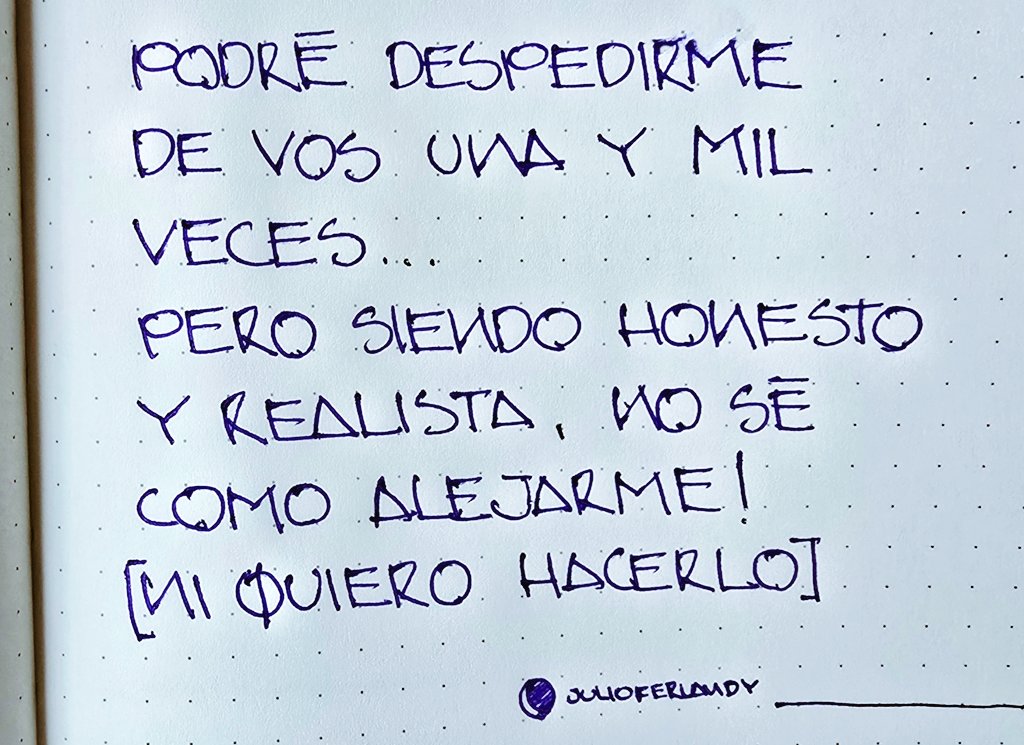 PODRÉ DESPEDIRME
DE VOS UNA Y MIL
VECES...
PERO SIENDO HONESTO
Y REALISTA, NO SÉ
COMO ALEJARME!
[NI QUIERO HACERLO]
JULIOFERLANDY